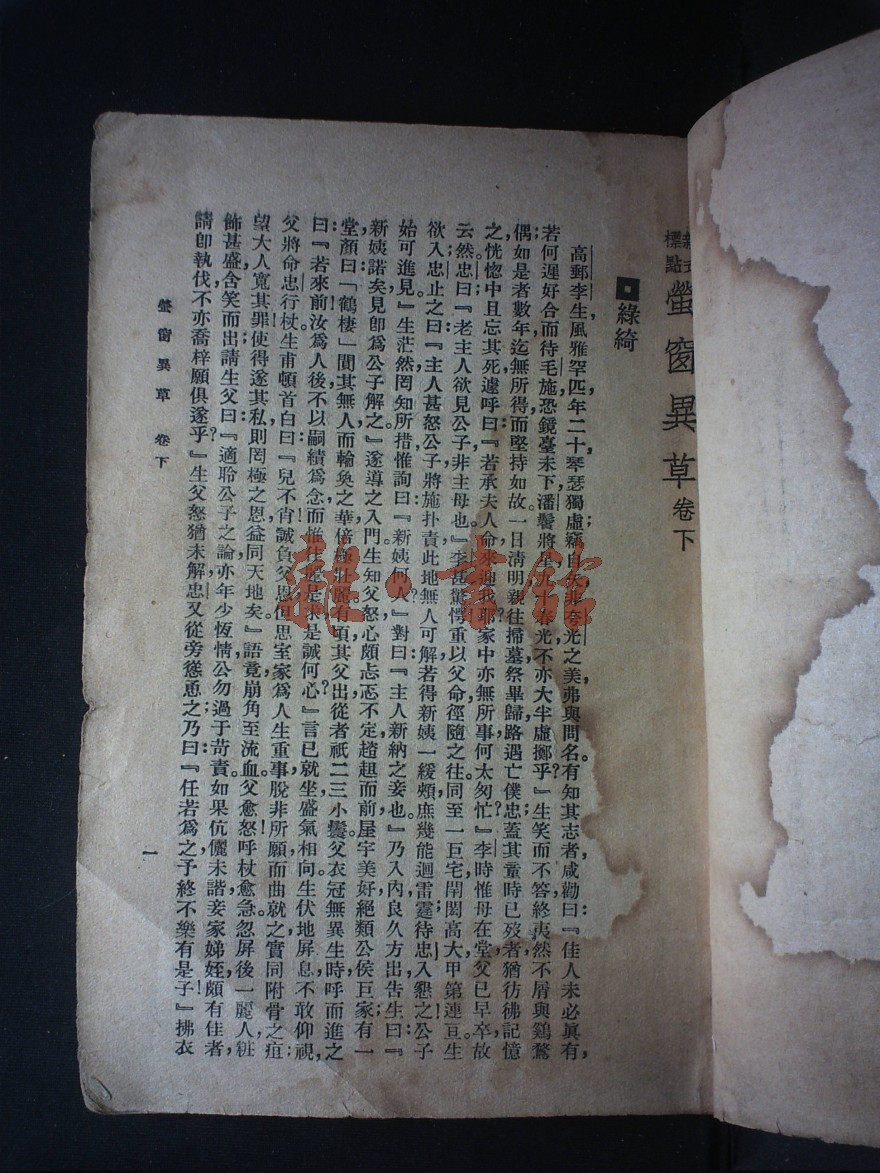 新式標點
螢窗異草卷下
綠綺
高郵李生，風雅罕匹，年二十，琴瑟獨虛；竊自矢非夸光之美，弗與問名。有知其志者，咸勸曰：『佳人未必眞有，
若何遲好合而待毛施；恐鏡臺未下，潘鬢將星，九十春光，不亦大半虛擲乎？』生笑而不答，終夷然不屑與鷄鶩
偶。如是者數年，迄無所得，而堅持如故。一日清明，親往掃墓，祭畢歸，路遇亡僕忠，蓋其童時已歿者，猶彷彿記憶
之；恍惚中且忘其死，遽呼曰：『若承夫人命來迎我耶？家中亦無所事，何太匆忙？』李時惟母在堂，父已早卒，故
云然。忠曰：『老主人欲見公子，非主母也。』李甚驚愕，重以父命，徑隨之往。同至一巨宅，閈閎高大，甲第連亘。生
欲入，忠止之曰：『主人甚怒公子，將施扑責，此地無人可解，若得新姨一緩頰，庶幾能迴雷霆，待忠入懇之，公子
始可進見。』生茫然罔知所措，惟詢曰：『新姨何人？』對曰：『主人新納之妾也。』乃入內，良久方出，告生曰：『
新姨諾矣，見卽爲公子解之。』遂導之入門，生知父怒，心頗忐忑不定，趦趄而前，屋宇美好，絕類公侯巨家；有一
堂顏曰：「鶴棲」，閴其無人，而輪奐之華，倍極壯麗。有頃，其父出，從者祇二三小鬟，父衣冠無異生時，呼而進之
曰：『若來前，汝爲人後，不以嗣續爲念，而惟佳麗是求，是誠何心？』言已就坐，盛氣相向，生伏地屏息，不敢仰視；
父將命忠行杖，生甫頓首白曰：『兒不肖，誠負父恩！但思室家爲人生重事，脫非所願而曲就之，實同附骨之疽；
望大人寬其罪，使得遂其私，則罔極之恩，益同天地矣。』語竟，崩角至流血。父愈怒，呼杖愈急。忽屏後一麗人，粧
飾甚盛，含笑而出，請生父曰：『適聆公子之論，亦年少恆情，公勿過于苛責。如果伉儷未諧，妾家娣姪，頗有佳者，
請卽執伐，不亦喬梓願俱遂乎？』生父怒猶未解，忠又從旁慫恿之，乃曰：『任若爲之，予終不樂有是子！』拂衣
螢窗異草　卷下
一
雜·書館